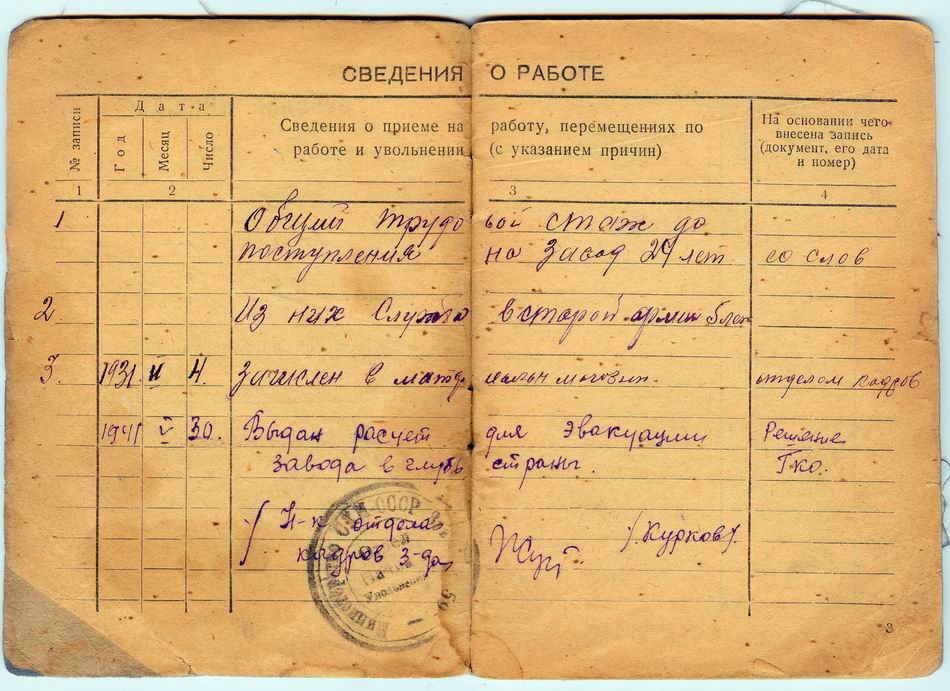 СВЕДЕНИЯ О РАБОТЕ
№ записи
Дата
Год
Месяц
Число
Сведения о приеме на работу, перемещениях по
работе и увольнении (с указанием причин)
На основании чего
внесена запись
(документ, его дата
и номер)
1 2 3 4
1 Общий трудовой стаж до
поступления на Завод 24 лет со слов
2. Из них Служба в старой армии 5 лет
3. 1931. II 4. Зачислен в отделом кадров
1941 V 30. Выдан расчет для эвакуации Решение
завода в глубь страны. Гко.
Н-к отдела
кадров з-да /Курков/.
СССР
Увольнения
59
3